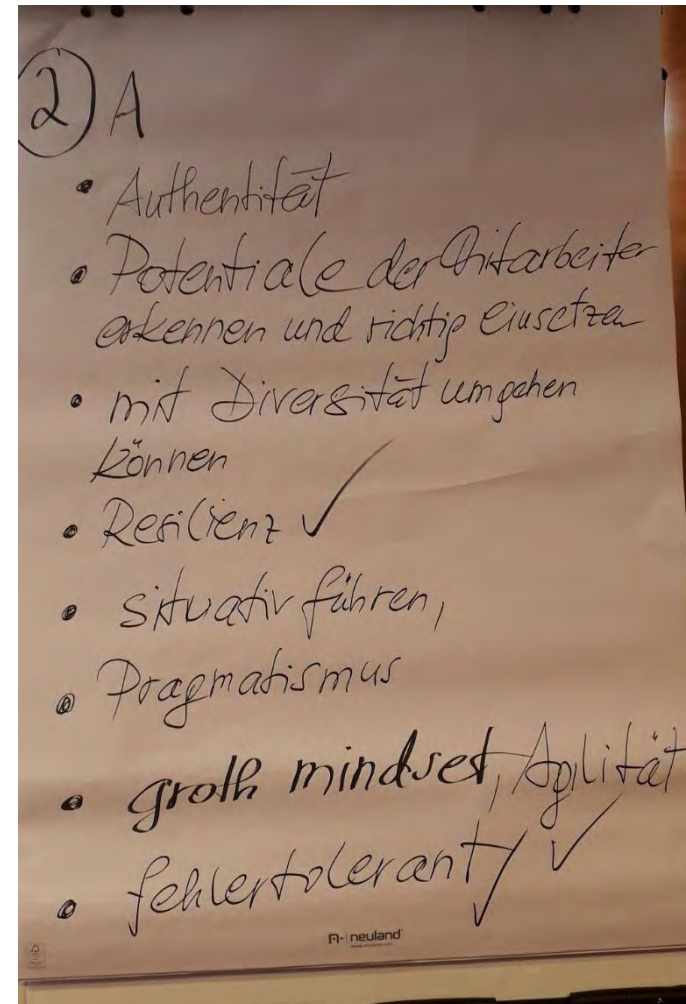 2 A
• Authentität
• Potentiale der Mitarbeiter
erkennen und richtig einsetzen
• mit Diversität umgehen
können
• Resilienz ✓
• situativ führen,
• Pragmatismus
• groth mindset, Agilität
• fehlertolerant ✓
neuland